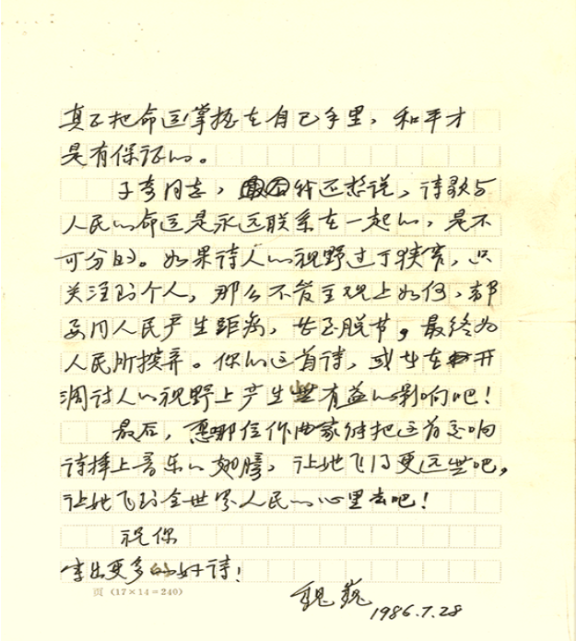 真正把命运掌握在自己手里，和平才
是有保证的。
子奇同志，我还想说，诗歌与
人民的命运是永远联系在一起的，是不
可分的。如果诗人的视野过于狭窄，只
关注到个人，那么不管主观上如何，都
要同人民产生距离，甚至脱节，最终为
人民所摈弃。你的这首诗，或者在开
阔诗人的视野上产生些有益的影响吧！
最后，愿哪位作曲家能把这首交响
诗插上音乐的翅膀，让她飞得更远些吧，
让她飞到全世界人民的心里去吧！
祝你
写出更多的好诗！
页（17×14=240）
魏巍
1986.7.28